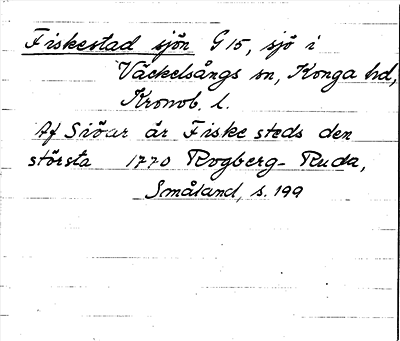 Fiskestad sjön G 15, sjö i
Väckelsångs sn, Konga hd,
Kronob. l.
Af Siöar är Fiske steds den
största 1770 Rogberg-Ruda,
Småland, s. 199